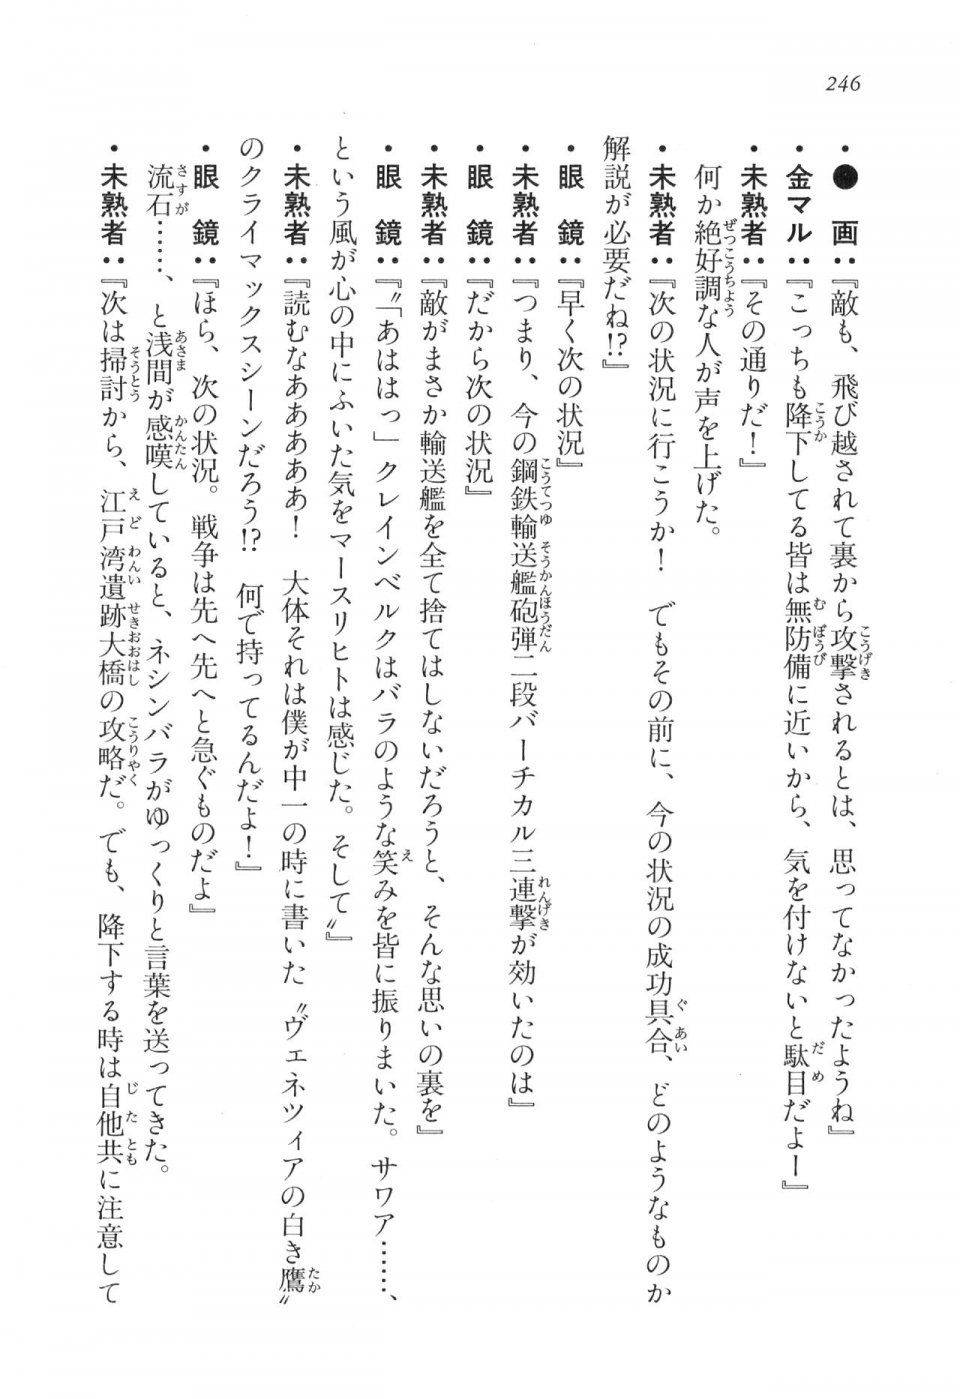 246
・●　画：『敵も、飛び越されて裏から攻撃されるとは、思ってなかったようね』
・金マル：『こっちも降下してる皆は無防備に近いから、気を付けないと駄目だよー』
・未熟者：『その通りだ！』
何か絶好調な人が声を上げた。
・未熟者：『次の状況に行こうか！　でもその前に、今の状況の成功具合、どのようなものか
解説が必要だね!?』
・眼　鏡：『早く次の状況』
・未熟者：『つまり、今の鋼鉄輸送艦砲弾二段バーチカル三連撃が効いたのは』
・眼　鏡：『だから次の状況』
・未熟者：『敵がまさか輸送艦を全て捨てはしないだろうと、そんな思いの裏を』
・眼　鏡：『〝「あははっ」クレインベルクはバラのような笑みを皆に振りまいた。サワア……、
という風が心の中にふいた気をマースリヒトは感じた。そして〟』
・未熟者：『読むなああああぁ！　大体それは僕が中一の時に書いた〝ヴェネツィアの白き鷹〟
のクライマックスシーンだろう!?　何で持ってるんだよ！』
・眼　鏡：『ほら、次の状況。戦争は先へ先へと急ぐものだよ』
流石……、と浅間が感嘆していると、ネシンバラがゆっくりと言葉を送ってきた。
・未熟者：『次は掃討から、江戸湾遺跡大橋の攻略だ。でも、降下する時は自他共に注意して